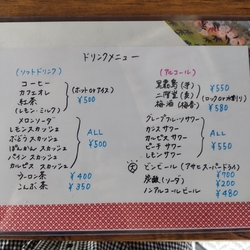 ドリンクメニュー
(ソフトドリンク)
コーヒー
カフェオレ
紅茶
(レモン・ミルク)
(ホット or アイス)
¥500
メロンソーダ
レモンスカッシュ
ぶどうスカッシュ
ぽんかんスカッシュ
パインスカッシュ
カルピススカッシュ
ALL
¥500
ウーロン茶 ¥400
こんぶ茶 ¥350
(アルコール)
黒霧島(芋)
二階堂(麦)
¥550
(ロック or 水割り)
梅酒(梅香) ¥580
グレープフルーツサワー
カシスサワー
カルピスサワー
ピーチサワー
レモンサワー
ALL
¥550
ビール(アサヒスーパードライ)
¥700
炭酸(ソーダ) ¥200
ノンアルコールビール ¥480